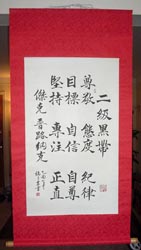 二級黑帶
尊敬 態度 紀律
目標 自信 自尊
堅持 專注 正直
傑克 普路納克